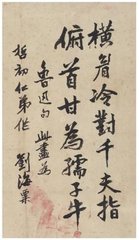 橫眉冷對千夫指
俯首甘為孺子牛
魯迅句
仁弟作 劉海粟